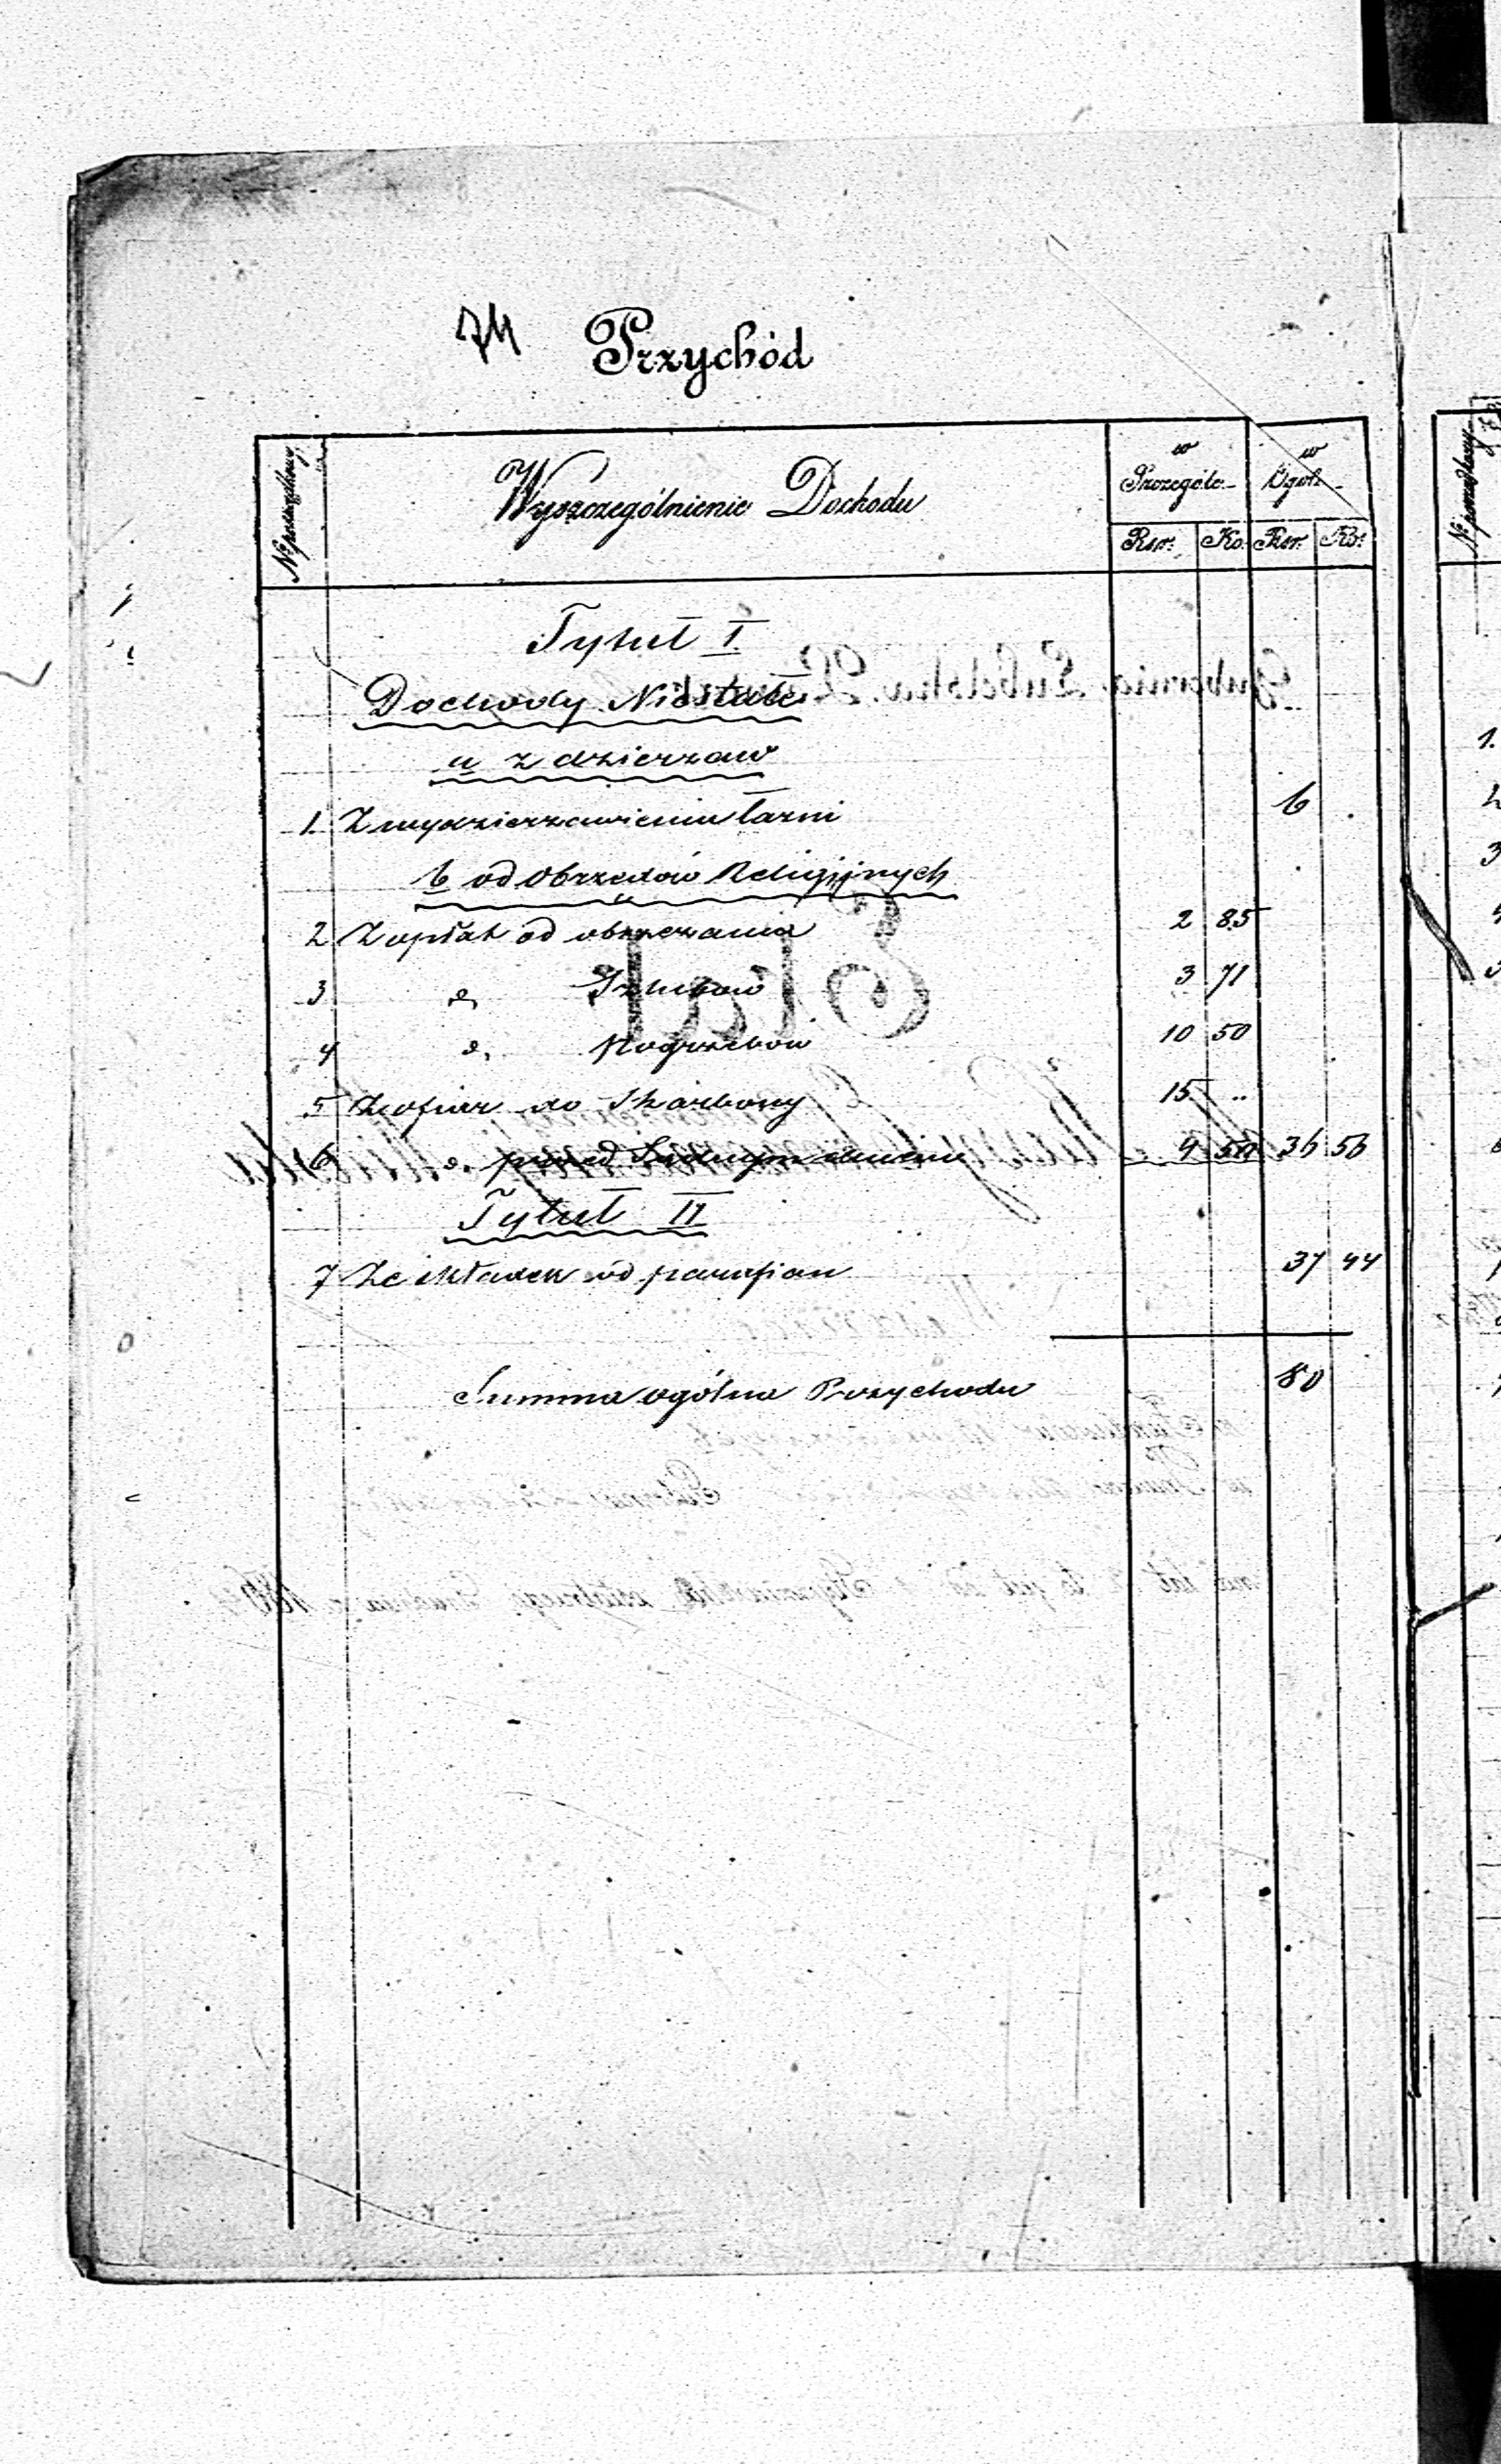 74 Przychód
№ porządkowy
Wyszczególnienie Dochodu
w Szczególe
w Ogóle
Rsr. Ko. Rsr. Ko.
Tytuł I.
Dochody Niestałe
a z dzierzaw
1. Z wydzierzawienia łazni 6 .
b od Obrzedów Religijnych
2 Z opłat od obrzezania 2 85
3 d. Szlubów 3 71
4 d. Pogrzebów 10 50
5 Z ofiar do Skarbony 15 ..
6 d. przed Sądnym dniem 4 50 36 56
Tytuł II
7 Ze składek od parafian 37 44
Summa ogólna Przychodu 80